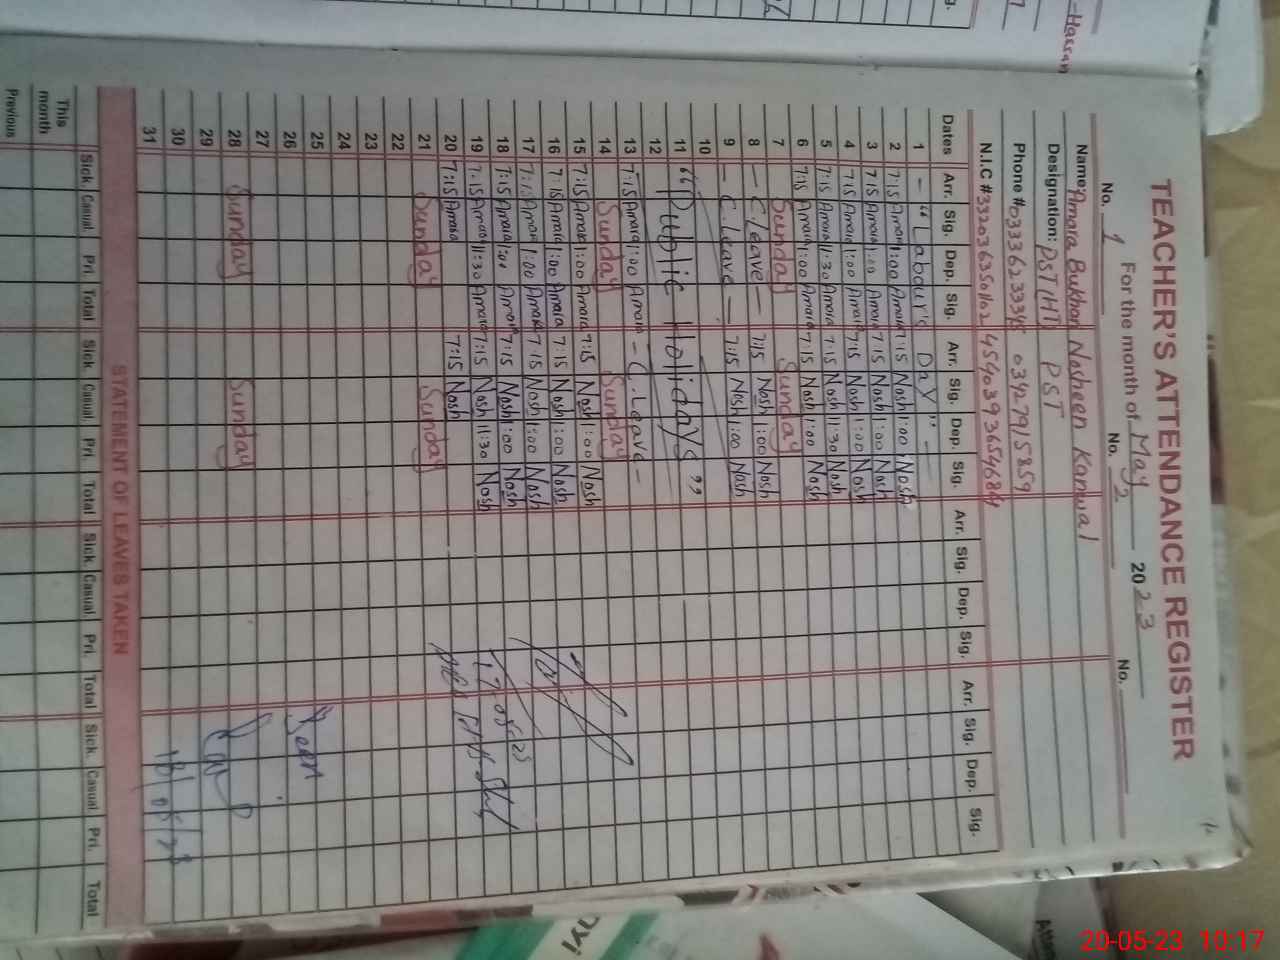 TEACHER'S ATTENDANCE REGISTER
For the month of May 2023
No. 1 No. 2 No.
Name: Amara Bukhari Nosheen Kanwal
Designation: PST (HT) PST
Phone # 03336233345 03427915859
N.I.C #
Dates Arr. Sig. Dep. Sig. Arr. Sig. Dep. Sig. Arr. Sig. Dep. Sig. Arr. Sig. Dep. Sig.
1 - "Labour's Day" -
2 7:15 Amara 1:00 Amara 7:15 Nosh 1:00 Nosh
3 7:15 Amara 1:00 Amara 7:15 Nosh 1:00 Nosh
4 7:15 Amara 1:00 Amara 7:15 Nosh 1:00 Nosh
5 7:15 Amara 11:30 Amara 7:15 Nosh 11:30 Nosh
6 7:15 Amara 1:00 Amara 7:15 Nosh 1:00 Nosh
7 Sunday Sunday
8 - C/leave - 7:15 Nosh 1:00 Nosh
9 - C.leave - 7:15 Nosh 1:00 Nosh
10
11 "Public Hollidays"
12
13 7:15 Amara 1:00 Amara - C.Leave -
14 Sunday Sunday
15 7:15 Amara 1:00 Amara 7:15 Nosh 1:00 Nosh
16 7:15 Amara 1:00 Amara 7:15 Nosh 1:00 Nosh
17 7:15 Amara 1:00 Amara 7:15 Nosh 1:00 Nosh
18 7:15 Amara 1:00 Amara 7:15 Nosh 1:00 Nosh
19 7:15 Amara 11:30 Amara 7:15 Nosh 11:30 Nosh
20 7:15 Amara 7:15 Nosh
21 Sunday Sunday
22
23
24
25
26 Seen
27
28 Sunday Sunday
29
30
31 18/05/23
STATEMENT OF LEAVES TAKEN
Sick. Casual. Pri. Total Sick. Casual. Pri. Total Sick. Casual. Pri. Total Sick. Casual. Pri. Total
This month
Previous
20-05-23 10:17